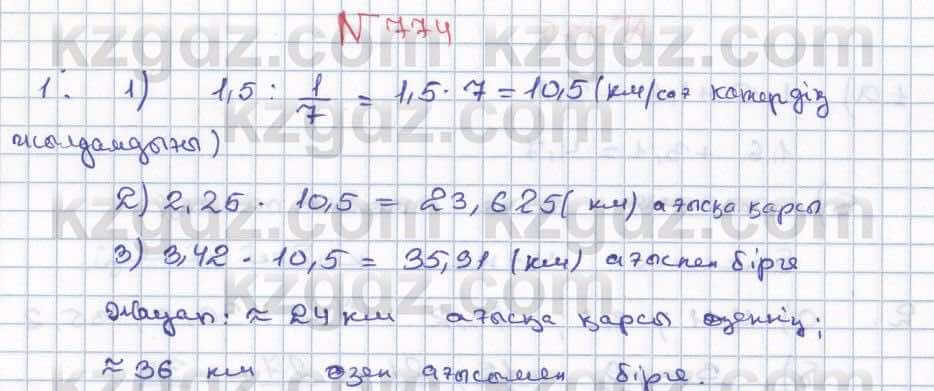 № 774
1. 1) 1,5 : 1/7 = 1,5 · 7 = 10,5 (км/сағ катердің
жылдамдығы)
2) 2,25 · 10,5 = 23,625 (км) ағысқа қарсы
3) 3,42 · 10,5 = 35,91 (км) ағыспен бірге
Жауап: ≈ 24 км ағысқа қарсы өзеннің;
≈ 36 км өзен ағысымен бірге.
kzgdz.com